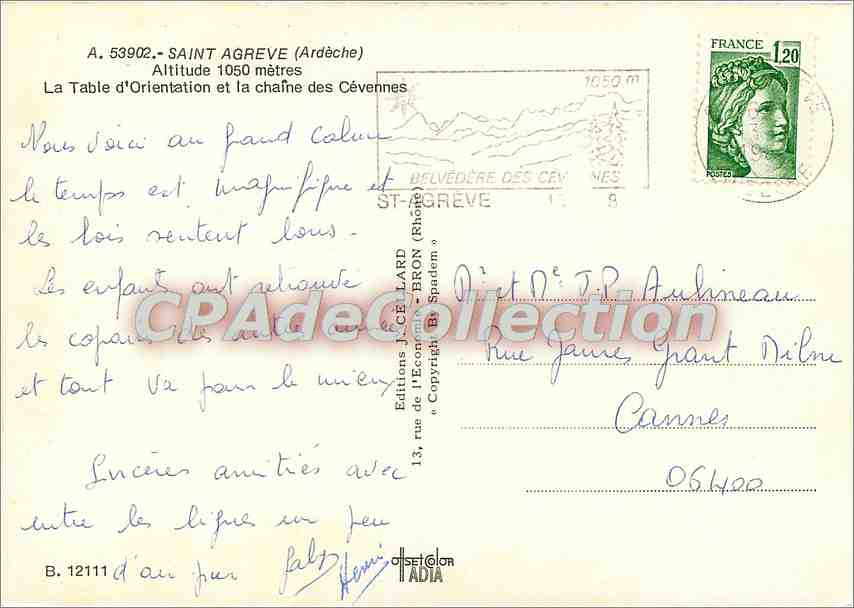 A. 53902.- SAINT AGREVE (Ardèche)
Altitude 1050 mètres
La Table d'Orientation et la chaîne des Cévennes
Nous voici au grand calme
le temps est magnifique et
les bois sentent bons.
Les enfants ont retrouvé
les copains des autres années
et tout va pour le mieux
Sincères amitiés avec
entre les lignes un peu
d'air pur
Henri
B. 12111
Editions J. CELLARD
13, rue de l'Economie - BRON (Rhône)
« Copyright By Spadem »
OFFSETCOLOR
ADIA
1050 m
BELVÉDÈRE DES CEV NNES
ST-AGREVE
FRANCE 1,20
POSTES
Mr et Me J.P. Aubineau
Rue James Grant Milne
Cannes
06400
CPAdeCollection